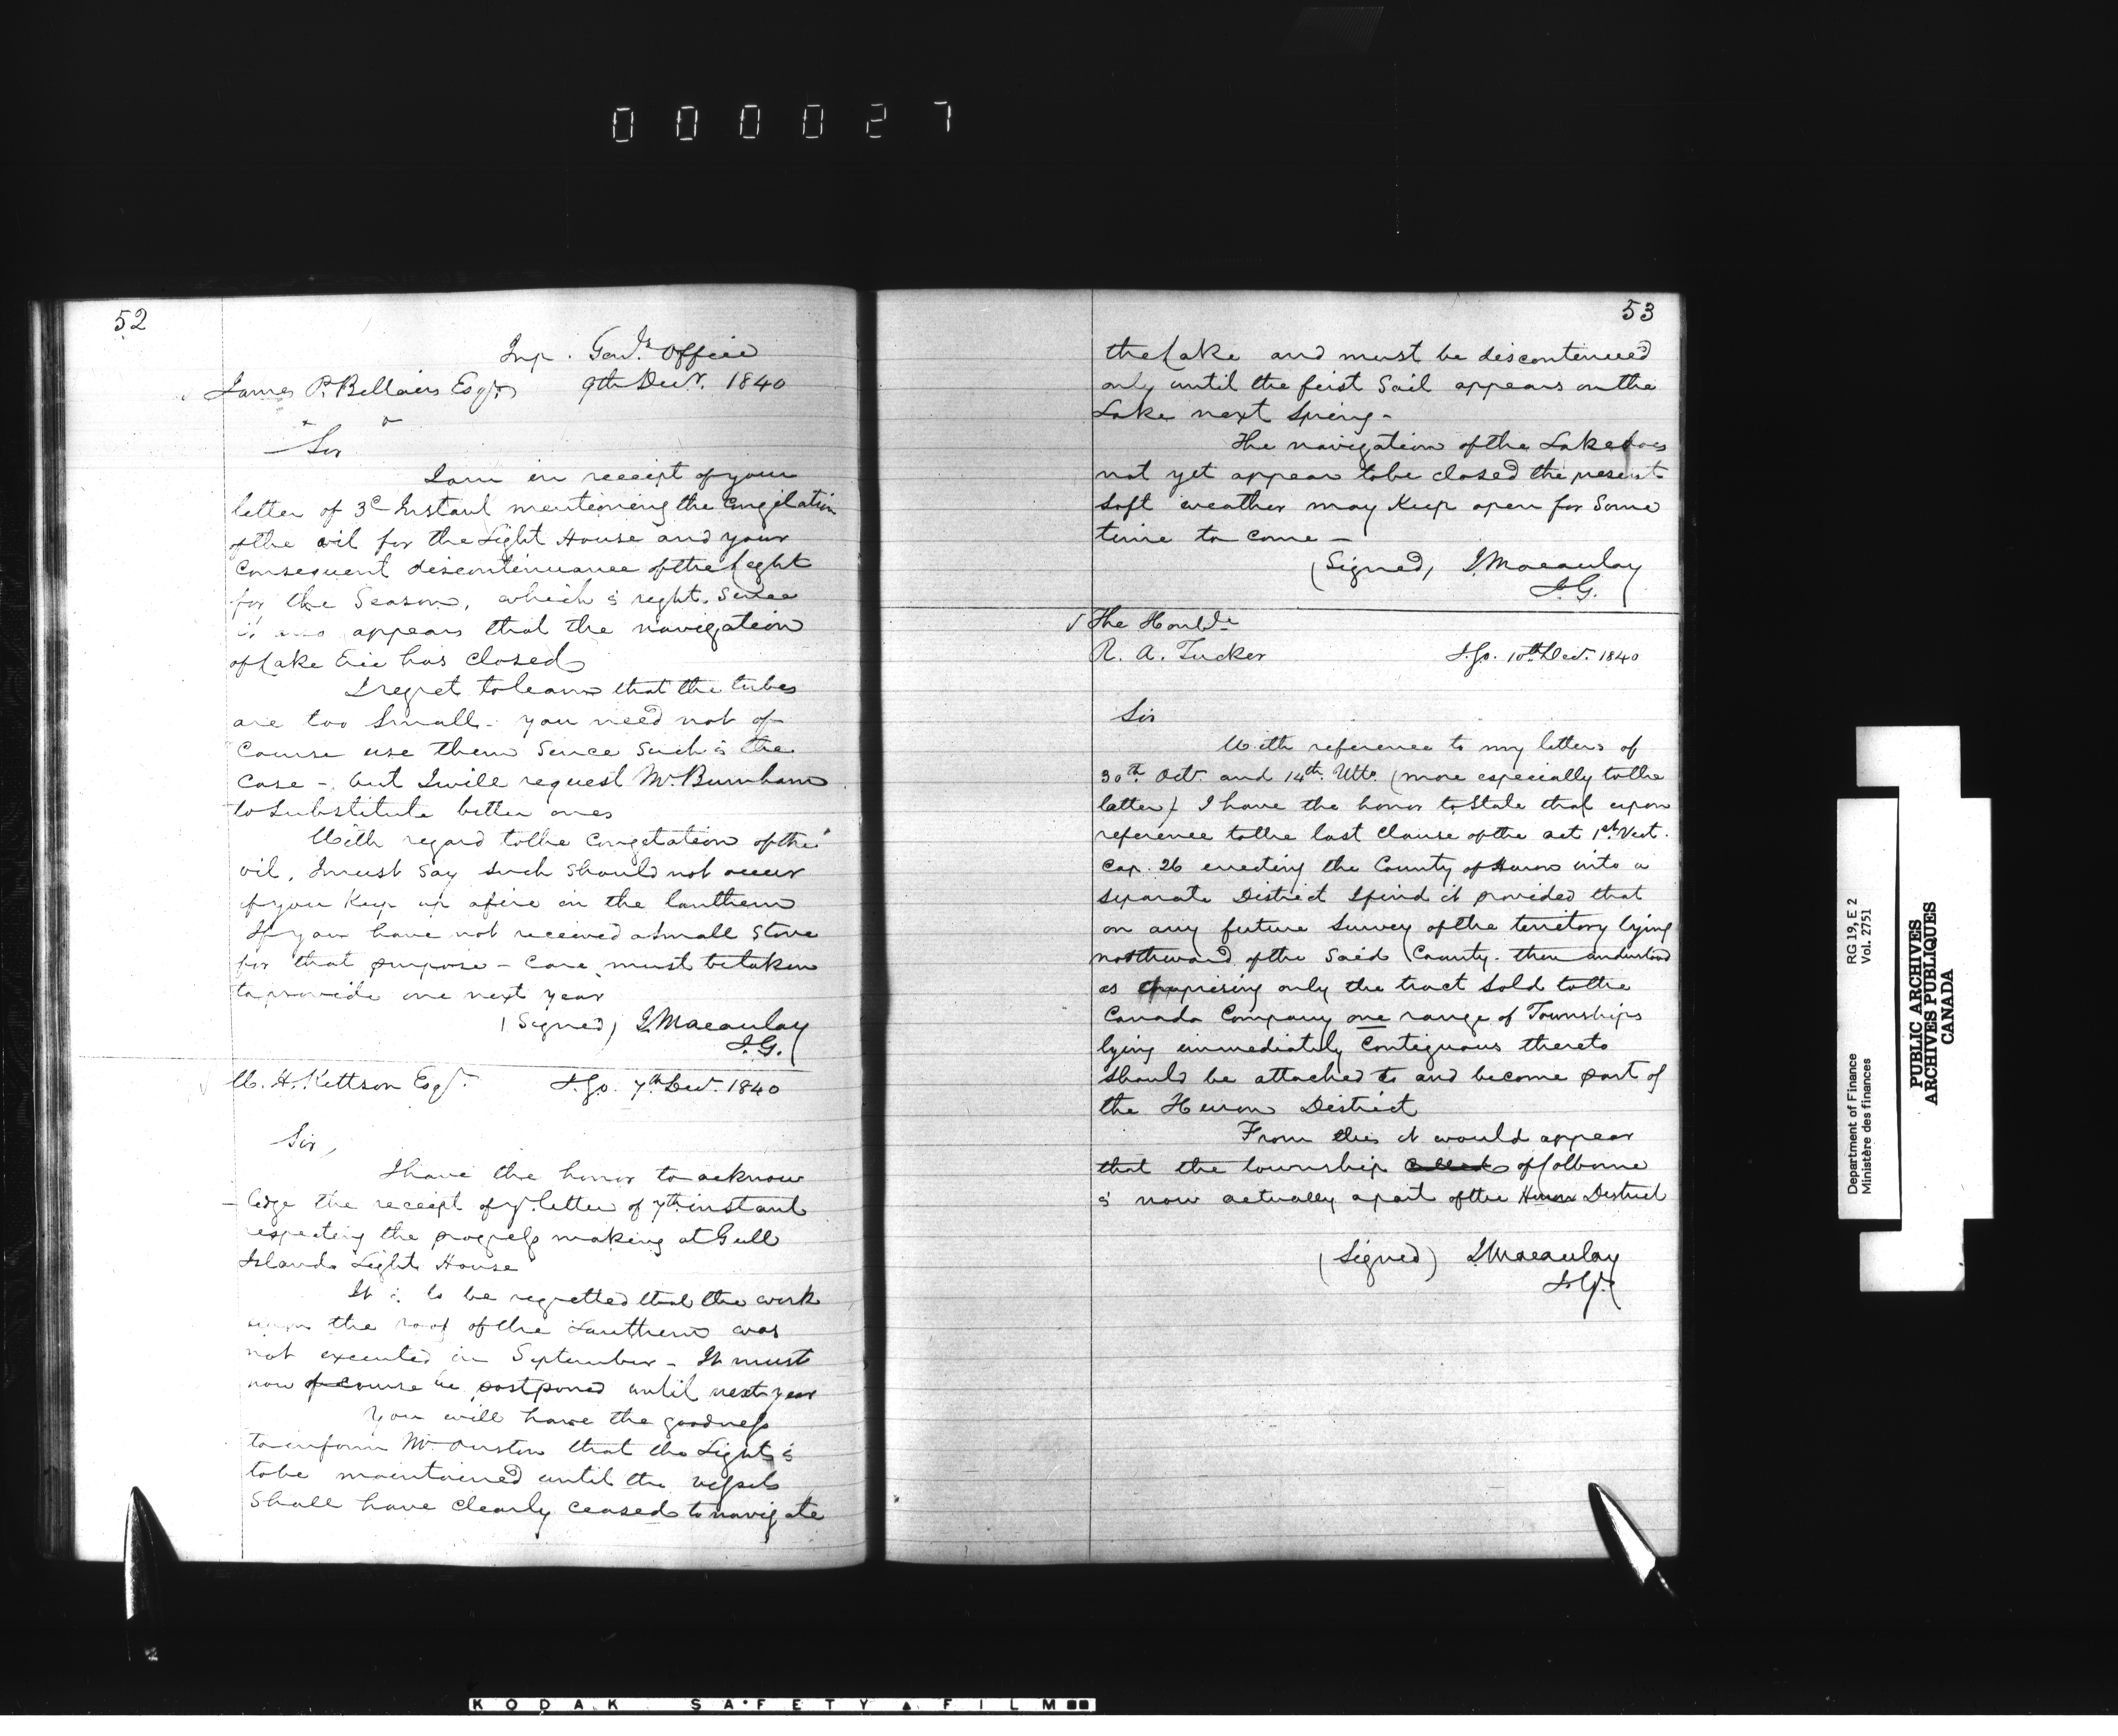 000027
52
Insp. Genls. Office
James P. Bellairs Esqr. 9th Decr. 1840
Sir
I am in receipt of your
letter of 3d Instant mentioning the Congelation
of the oil for the Light House and your
Consequent discontinuance of the Light
for the Season, which is right. Since
it also appears that the navigation
of Lake Erie has closed
I regret to learn that the tubes
are too Small - you need not of
Course use them Since Such is the
Case - but I will request Mr. Burnham
to Substitute better ones
With regard to the Congelation of the
oil, I must Say such Should not occur
if you Keep up a fire in the lanthern
If you have not received a small Stove
for that purpose - Care must be taken
to provide one next year
(Signed) J. Macaulay
I.G.
I.G.O. 7th Decr. 1840
Sir,
I have the honor to acknow
-ledge the receipt of yr. letter of 7th instant
respecting the progress making at Gull
Island Light House
It is to be regretted that the work
upon the roof of the Lanthern was
not executed in September - It must
now of course be postponed until next year
You will have the goodness
to inform Mr. that the Light is
to be maintained until the vessels
Shall have clearly ceased to navigate
53
the Lake and must be discontinued
only until the first Sail appears on the
Lake next Spring -
The navigation of the Lake does
not yet appear to be closed the present
soft weather may Keep open for Some
time to come -
(Signed) J. Macaulay
I.G.
The Honble
R. A. Tucker I.G.O. 10th Decr. 1840
Sir
With reference to my letters of
30th Octr. and 14th. Ulto. (more especially to the
latter) I have the honor to State that upon
reference to the last Clause of the act 1st Vict.
Cap. 26 erecting the County of Huron into a
Separate District I find it provided that
on any future Survey of the territory lying
northward of the Said County - then understood
as comprising only the tract Sold to the
Canada Company one range of Townships
lying immediately Contiguous thereto
Should be attached to and become part of
the Huron District
From this it would appear
that the township called of Colborne
is now actually a part of the Huron District
(Signed) J. Macaulay
I.G.
RG 19, E 2
Vol. 2751
Department of Finance
Ministère des finances
PUBLIC ARCHIVES
ARCHIVES PUBLIQUES
CANADA
KODAK SAFETY FILM